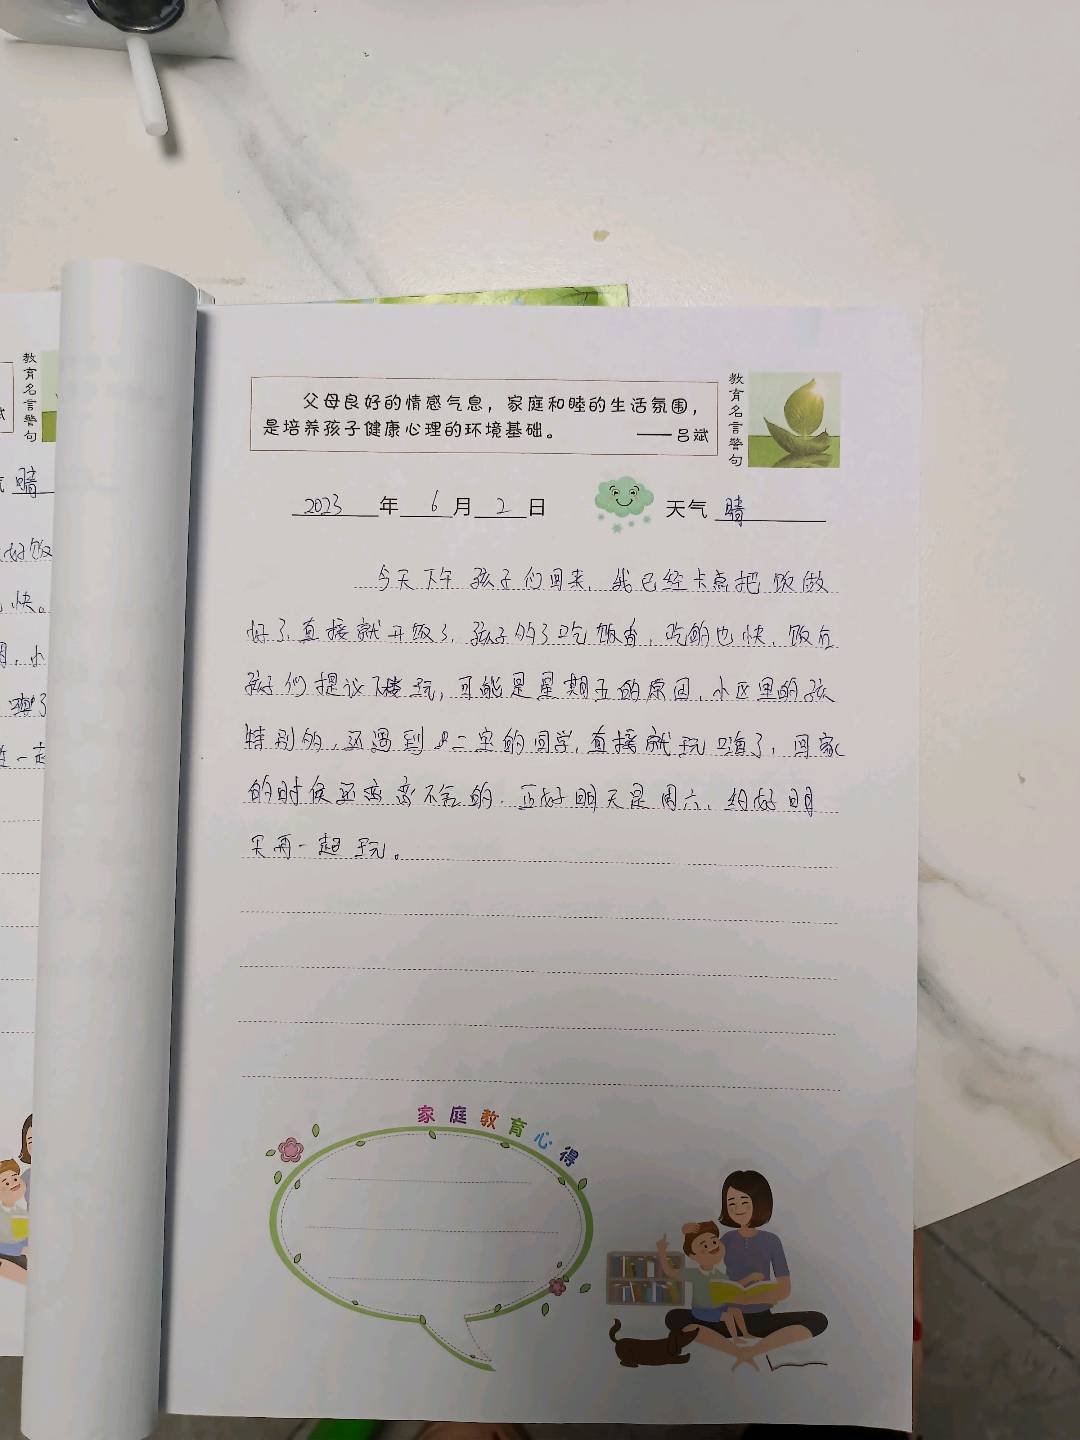 父母良好的情感气息，家庭和睦的生活氛围，
是培养孩子健康心理的环境基础。 ——吕斌
教育名言警句
2023年6月2日 天气 晴
今天下午孩子们回来，我已经卡点把饭做
好了，直接就开饭了，孩子的了吃饭香，吃的也快，饭后
孩子们提议下楼玩，可能是星期五的原因，小区里的孩
特别的，还遇到 二宝的同学，直接就玩嗨了，回家
的时候还恋恋不舍的，正好明天是周六，约好明
天再一起玩。
家庭教育心得
教育名言警句
斌
气 晴
好饭
快。
小
噢了
一起